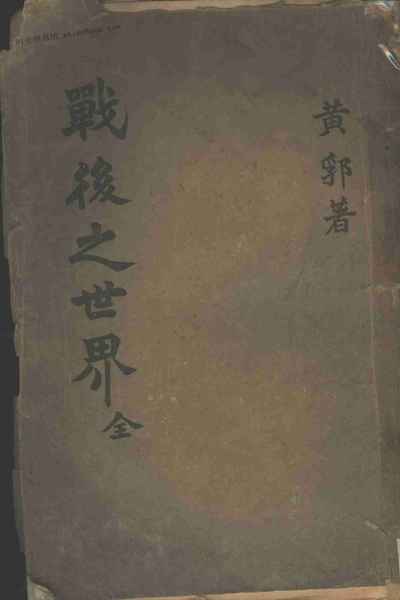 黃郛著
戰後之世界
全